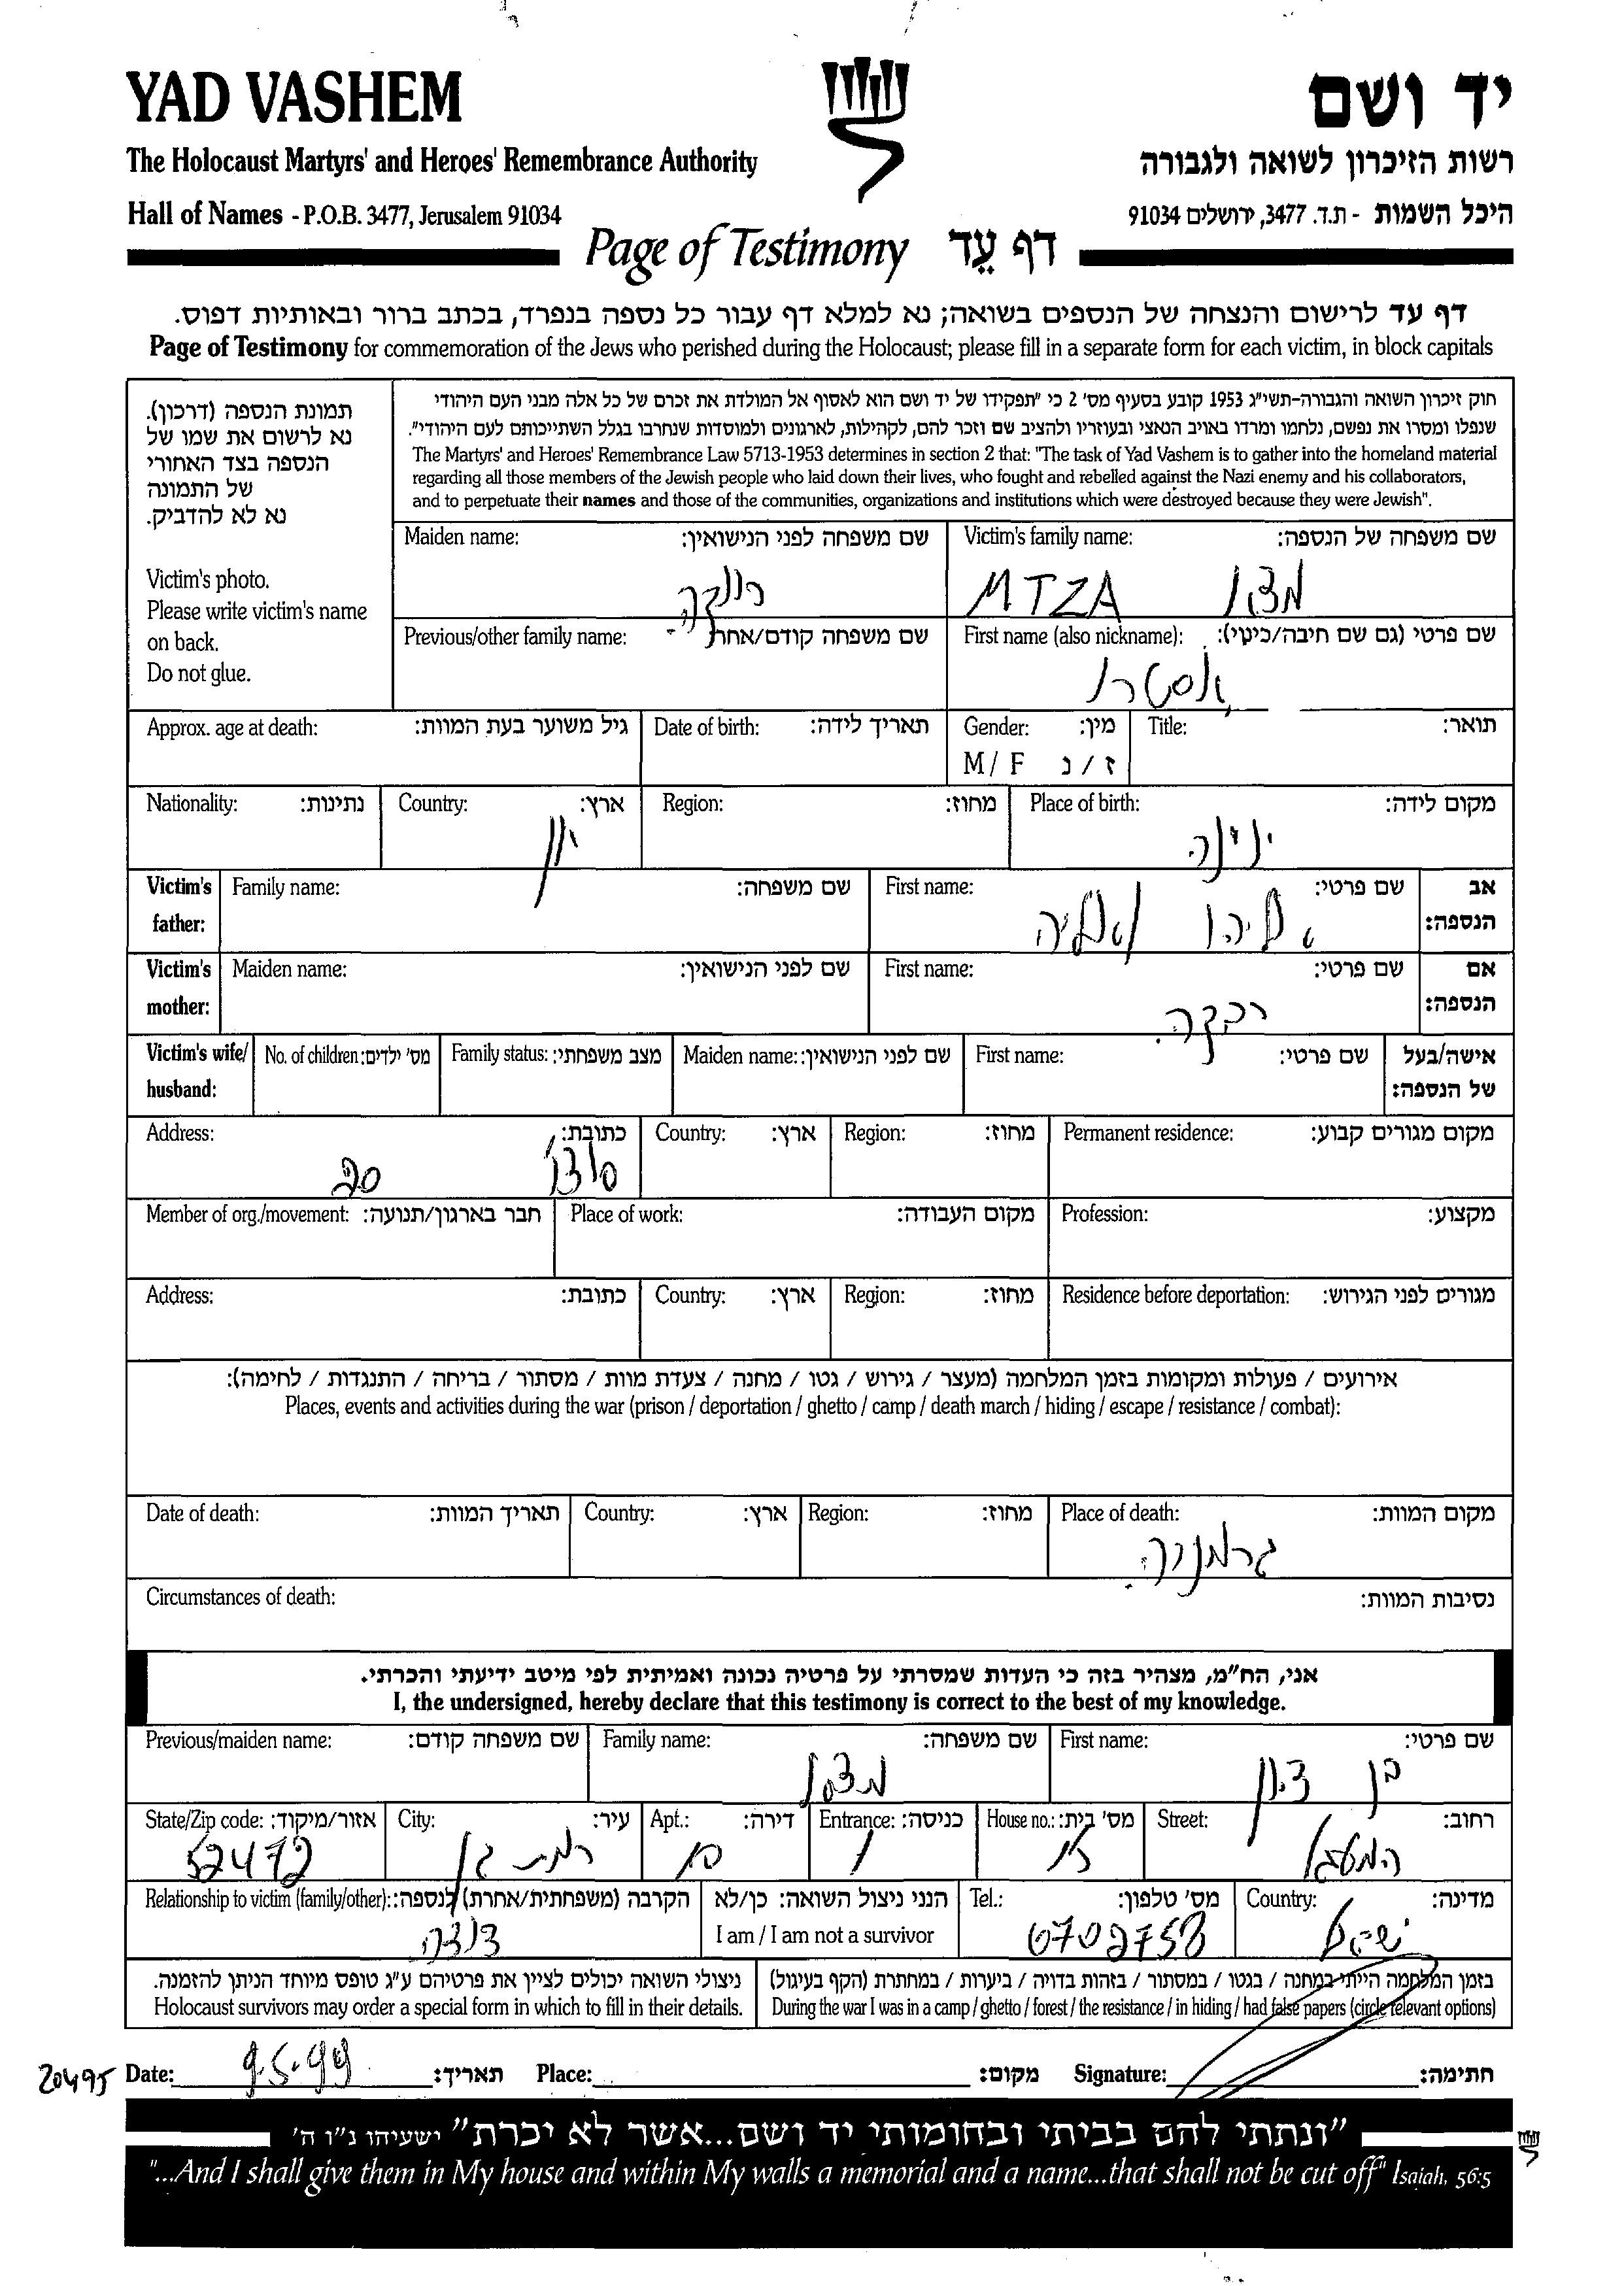 YAD VASHEM
יד ושם
The Holocaust Martyrs' and Heroes' Remembrance Authority
רשות הזיכרון לשואה ולגבורה
Hall of Names - P.O.B. 3477, Jerusalem 91034
היכל השמות - ת.ד. 3477, ירושלים 91034
Page of Testimony דף עֵד
דף עד לרישום והנצחה של הנספים בשואה; נא למלא דף עבור כל נספה בנפרד, בכתב ברור ובאותיות דפוס.
Page of Testimony for commemoration of the Jews who perished during the Holocaust; please fill in a separate form for each victim, in block capitals
תמונת הנספה (דרכון).
נא לרשום את שמו של
הנספה בצד האחורי
של התמונה
נא לא להדביק.
Victim's photo.
Please write victim's name
on back.
Do not glue.
חוק זיכרון השואה והגבורה-תשי"ג 1953 קובע בסעיף מס' 2 כי "תפקידו של יד ושם הוא לאסוף אל המולדת את זכרם של כל אלה מבני העם היהודי
שנפלו ומסרו את נפשם, נלחמו ומרדו באויב הנאצי ובעוזריו ולהציב שם וזכר להם, לקהילות, לארגונים ולמוסדות שנחרבו בגלל השתייכותם לעם היהודי".
The Martyrs' and Heroes' Remembrance Law 5713-1953 determines in section 2 that: "The task of Yad Vashem is to gather into the homeland material
regarding all those members of the Jewish people who laid down their lives, who fought and rebelled against the Nazi enemy and his collaborators,
and to perpetuate their names and those of the communities, organizations and institutions which were destroyed because they were Jewish".
Maiden name: שם משפחה לפני הנישואין:
Victim's family name: שם משפחה של הנספה:
MTZA מצא
Previous/other family name: שם משפחה קודם/אחר:
First name (also nickname): שם פרטי (גם שם חיבה/כינוי):
אסטרו
Approx. age at death: גיל משוער בעת המוות:
Date of birth: תאריך לידה:
Gender: מין:
M / F ז / נ
Title: תואר:
Nationality: נתינות:
Country: ארץ:
יוון
Region: מחוז:
Place of birth: מקום לידה:
ינינה
Victim's father: Family name: שם משפחה:
First name: שם פרטי: אב הנספה:
אליהו
Victim's mother: Maiden name: שם לפני הנישואין:
First name: שם פרטי: אם הנספה:
רבקה
Victim's wife/ husband: No. of children: מס' ילדים:
Family status: מצב משפחתי:
Maiden name: שם לפני הנישואין:
First name: שם פרטי: אישה/בעל של הנספה:
Address: כתובת:
Country: ארץ:
Region: מחוז:
Permanent residence: מקום מגורים קבוע:
20
Member of org./movement: חבר בארגון/תנועה:
Place of work: מקום העבודה:
Profession: מקצוע:
Address: כתובת:
Country: ארץ:
Region: מחוז:
Residence before deportation: מגורים לפני הגירוש:
אירועים / פעולות ומקומות בזמן המלחמה (מעצר / גירוש / גטו / מחנה / צעדת מוות / מסתור / בריחה / התנגדות / לחימה):
Places, events and activities during the war (prison / deportation / ghetto / camp / death march / hiding / escape / resistance / combat):
Date of death: תאריך המוות:
Country: ארץ:
Region: מחוז:
Place of death: מקום המוות:
גרמניה
Circumstances of death: נסיבות המוות:
אני, הח"מ, מצהיר בזה כי העדות שמסרתי על פרטיה נכונה ואמיתית לפי מיטב ידיעתי והכרתי.
I, the undersigned, hereby declare that this testimony is correct to the best of my knowledge.
Previous/maiden name: שם משפחה קודם:
Family name: שם משפחה:
מצא
First name: שם פרטי:
בן ציון
State/Zip code: אזור/מיקוד:
52472
City: עיר:
רמת גן
Apt.: דירה:
Entrance: כניסה:
House no.: מס' בית:
Street: רחוב:
Relationship to victim (family/other): הקרבה (משפחתית/אחרת) לנספה:
דודה
הנני ניצול השואה: כן/לא
I am / I am not a survivor
Tel.: מס' טלפון:
6702758
Country: מדינה:
ישראל
ניצולי השואה יכולים לציין את פרטיהם ע"ג טופס מיוחד הניתן להזמנה.
Holocaust survivors may order a special form in which to fill in their details.
בזמן המלחמה הייתי במחנה / בגטו / במסתור / בזהות בדויה / ביערות / במחתרת (הקף בעיגול)
During the war I was in a camp / ghetto / forest / the resistance / in hiding / had false papers (circle relevant options)
20495
Date: 9.5.99 תאריך: Place: מקום: Signature: חתימה:
"ונתתי להם בביתי ובחומותי יד ושם...אשר לא יכרת" ישעיהו נ"ו ה'
"...And I shall give them in My house and within My walls a memorial and a name...that shall not be cut off" Isaiah, 56:5